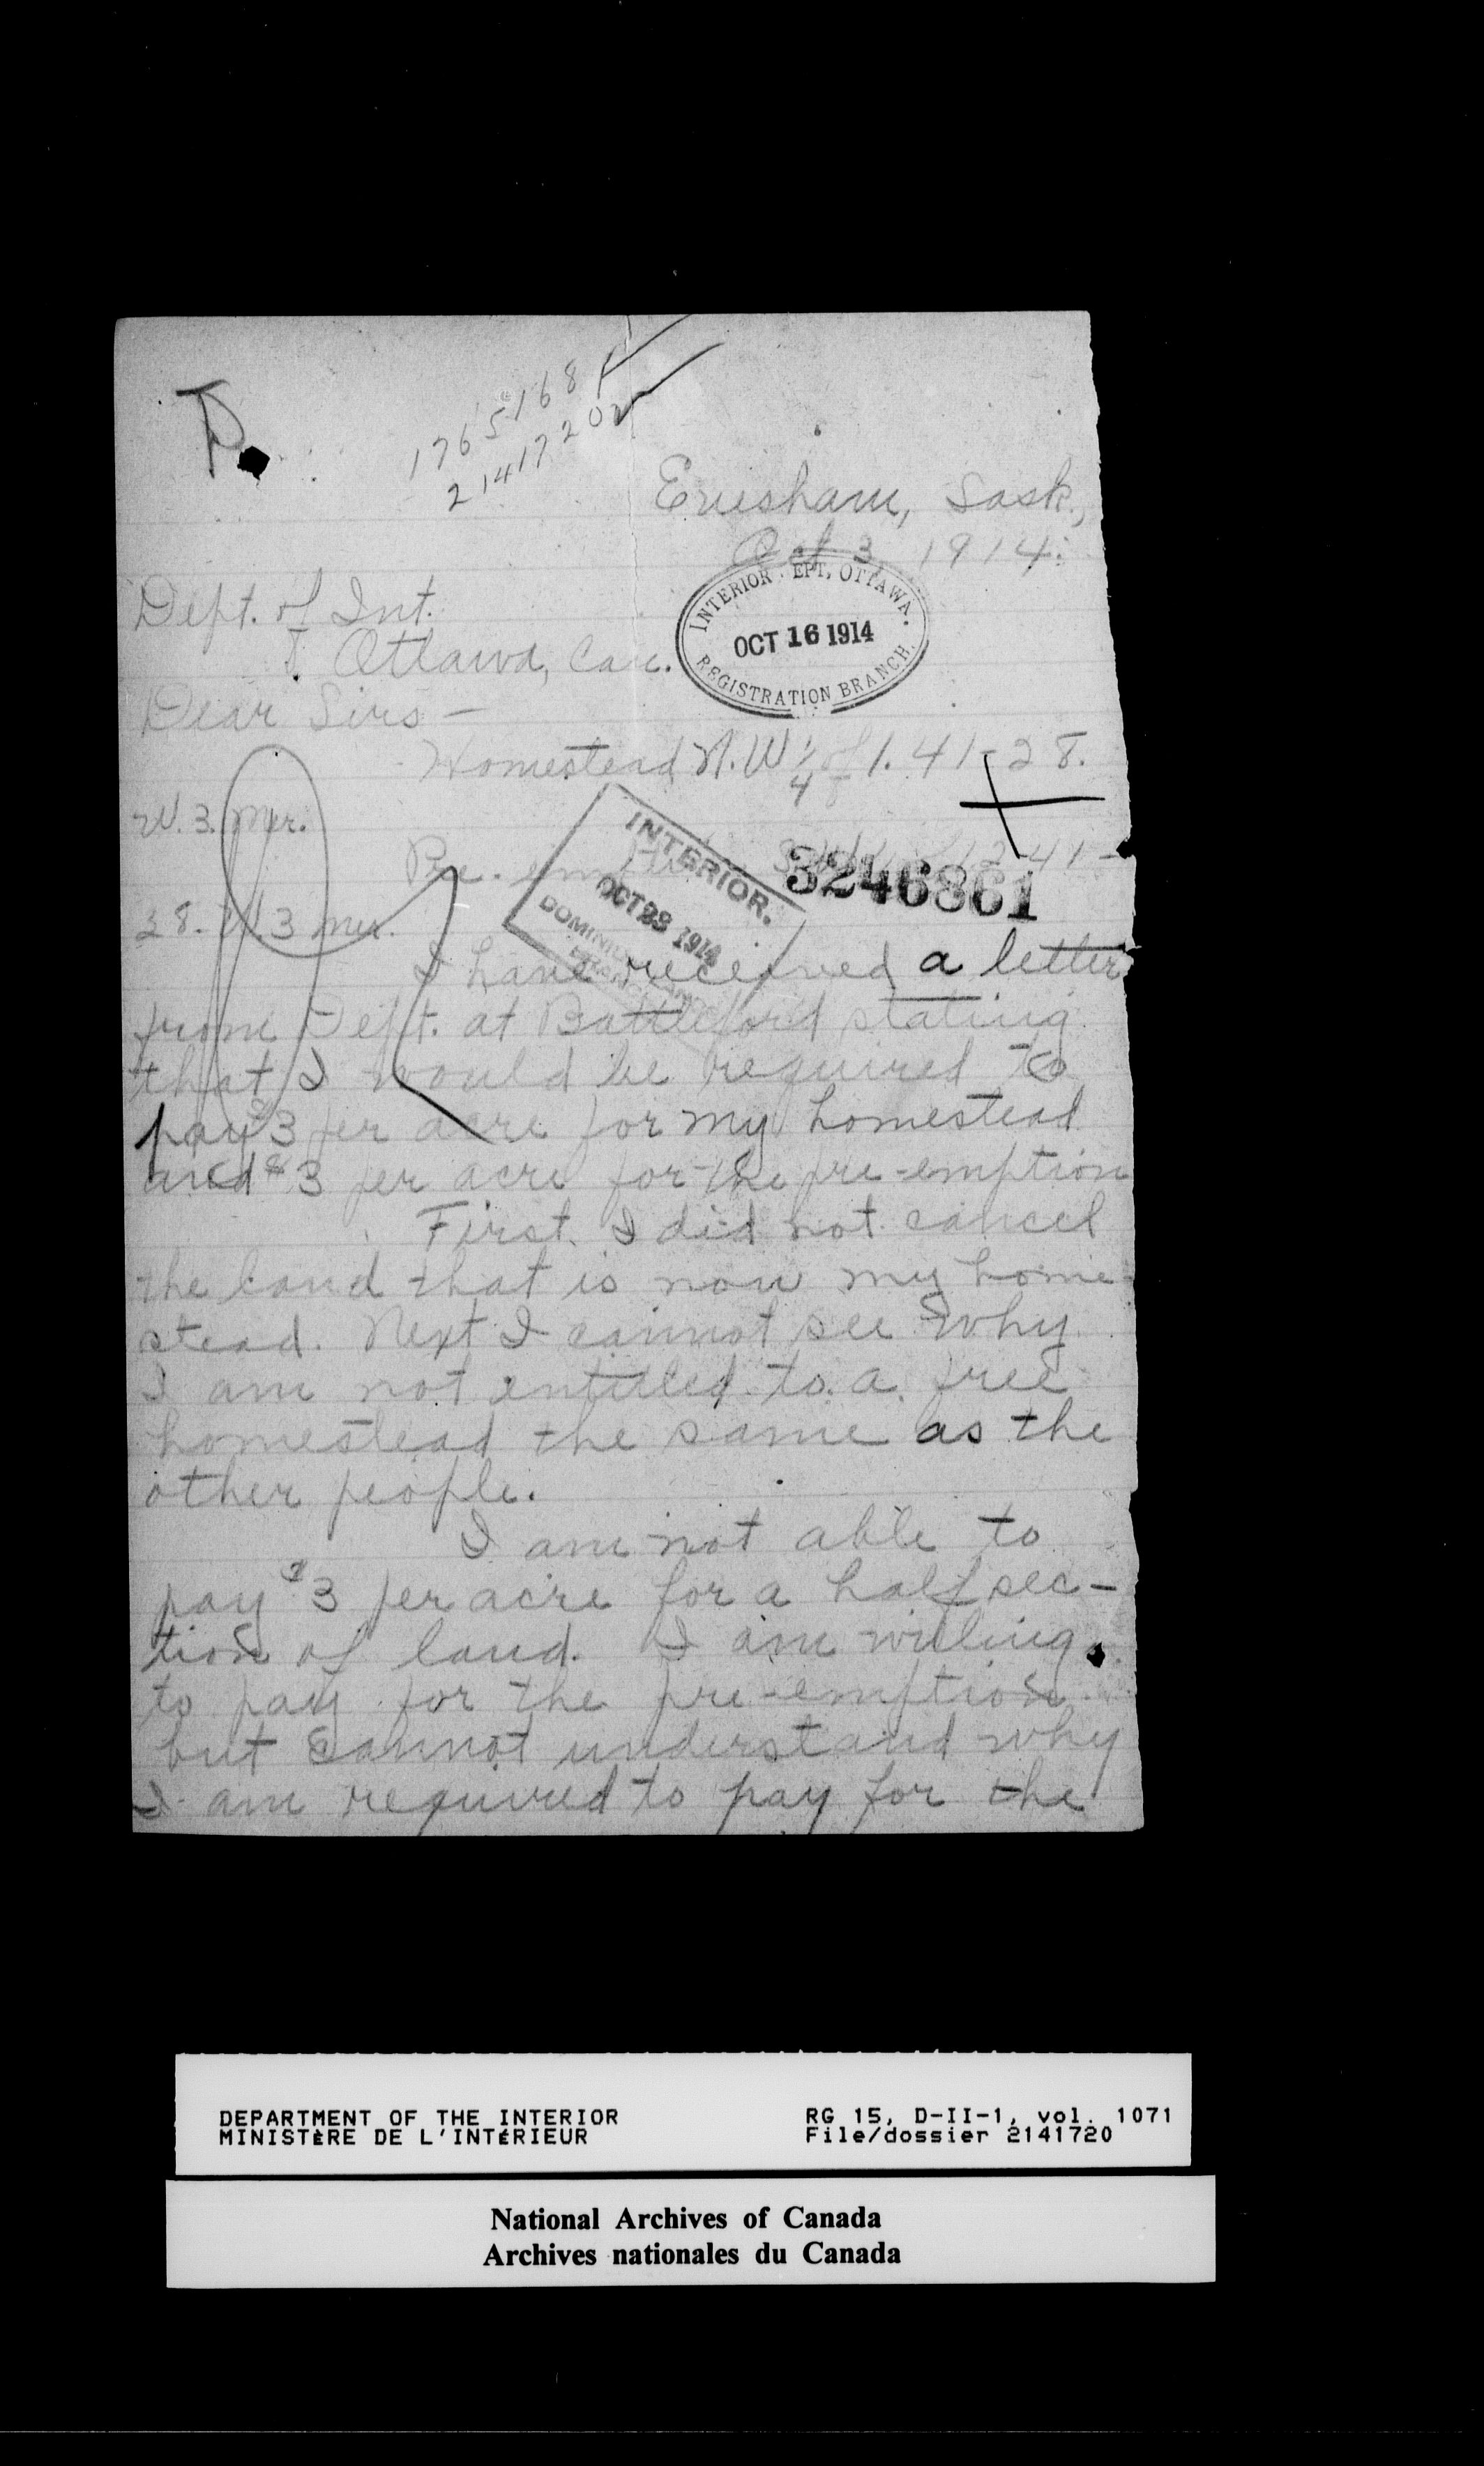 P.
1765168
2141720
Evesham, Sask.,
Oct 3 1914.
Dept. of Int.
Ottawa, Can.
INTERIOR EPT, OTTAWA.
OCT 16 1914
REGISTRATION BRANCH.
Dear Sirs –
Homestead N.W 1/4 of 1. 41-28.
W. 3. Mer.
Pre-emption 12-41-
3246861
INTERIOR.
OCT 28 1914
DOMINION LANDS
BRANCH
28. W 3 mer.
I have received a letter
from Dept. at Battleford stating
that I would be required to
pay $3 per acre for my homestead
and $3 per acre for the pre-emption
First. I did not cancel
the land that is now my home-
stead. Next I cannot see why
I am not entitled to a free
homestead the same as the
other people.
I am not able to
pay $3 per acre for a half sec-
tion of land. I am willing
to pay for the pre-emption
but cannot understand why
I am required to pay for the
DEPARTMENT OF THE INTERIOR
MINISTÈRE DE L'INTÉRIEUR
RG 15, D-II-1, vol. 1071
File/dossier 2141720
National Archives of Canada
Archives nationales du Canada